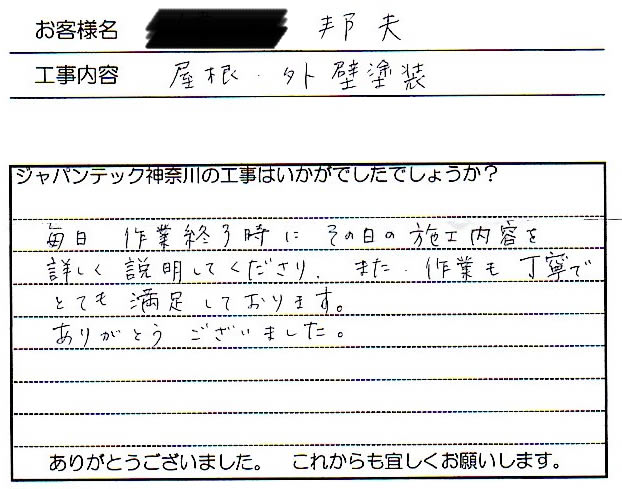 お客様名 邦夫
工事内容 屋根・外壁塗装
ジャパンテック神奈川の工事はいかがでしたでしょうか？
毎日 作業終了時にその日の施工内容を
詳しく説明してくださり、また、作業も丁寧で
とても満足しております。
ありがとうございました。
ありがとうございました。 これからも宜しくお願いします。